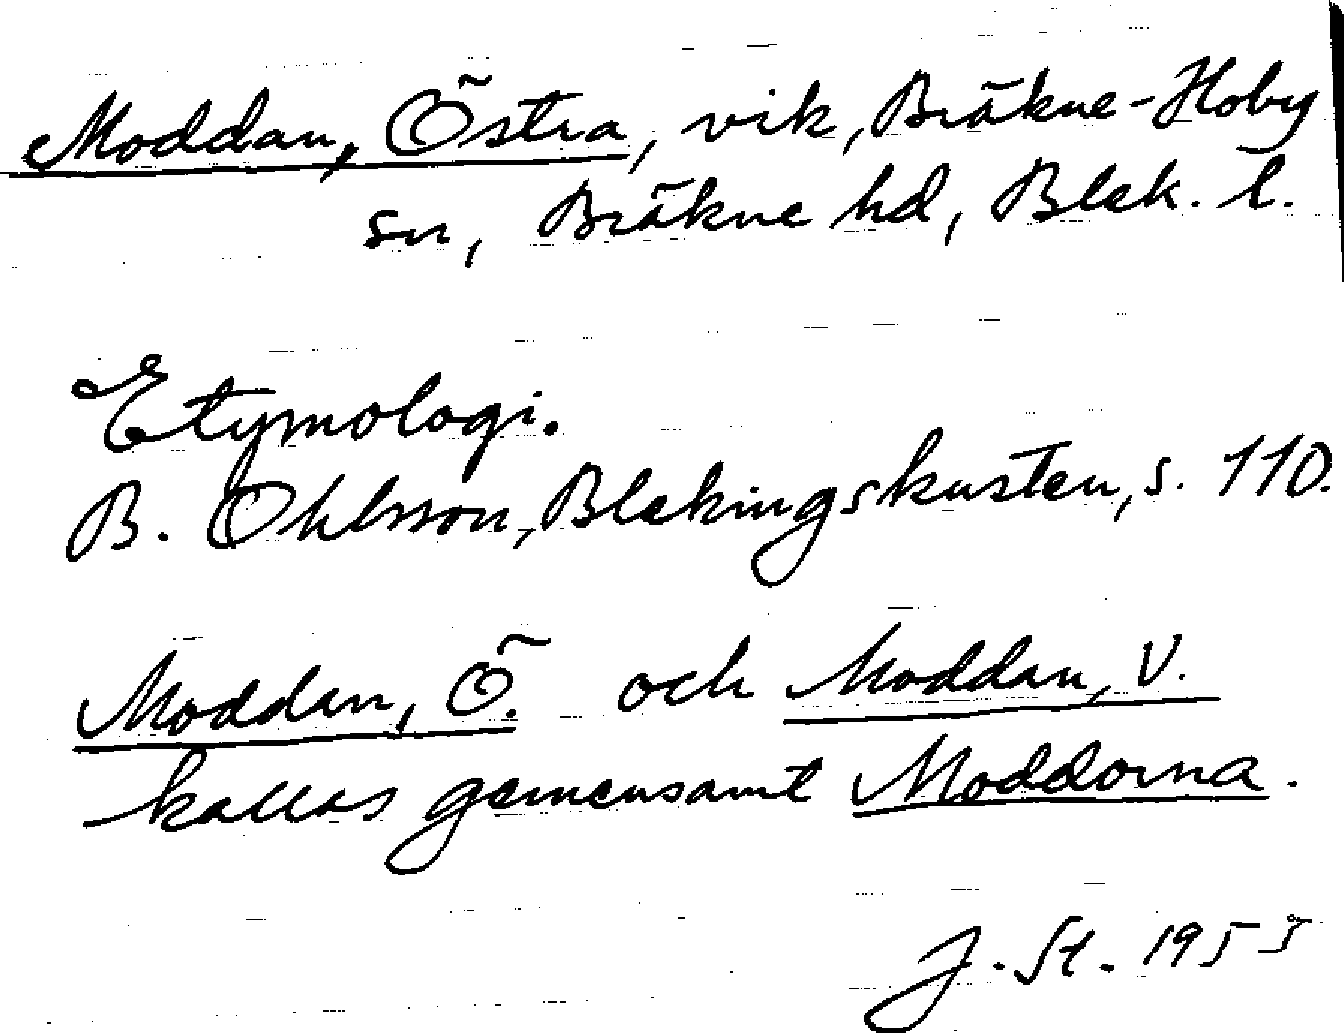 Moddan, Östra, vik, Bräkne-Hoby
sn, Bräkne hd, Blek. l.
Etymologi.
B. Ohlsson, Blekingskusten, s. 110.
Moddan, Ö. och Moddan, V.
kallas gemensamt Moddorna.
J. St. 1955